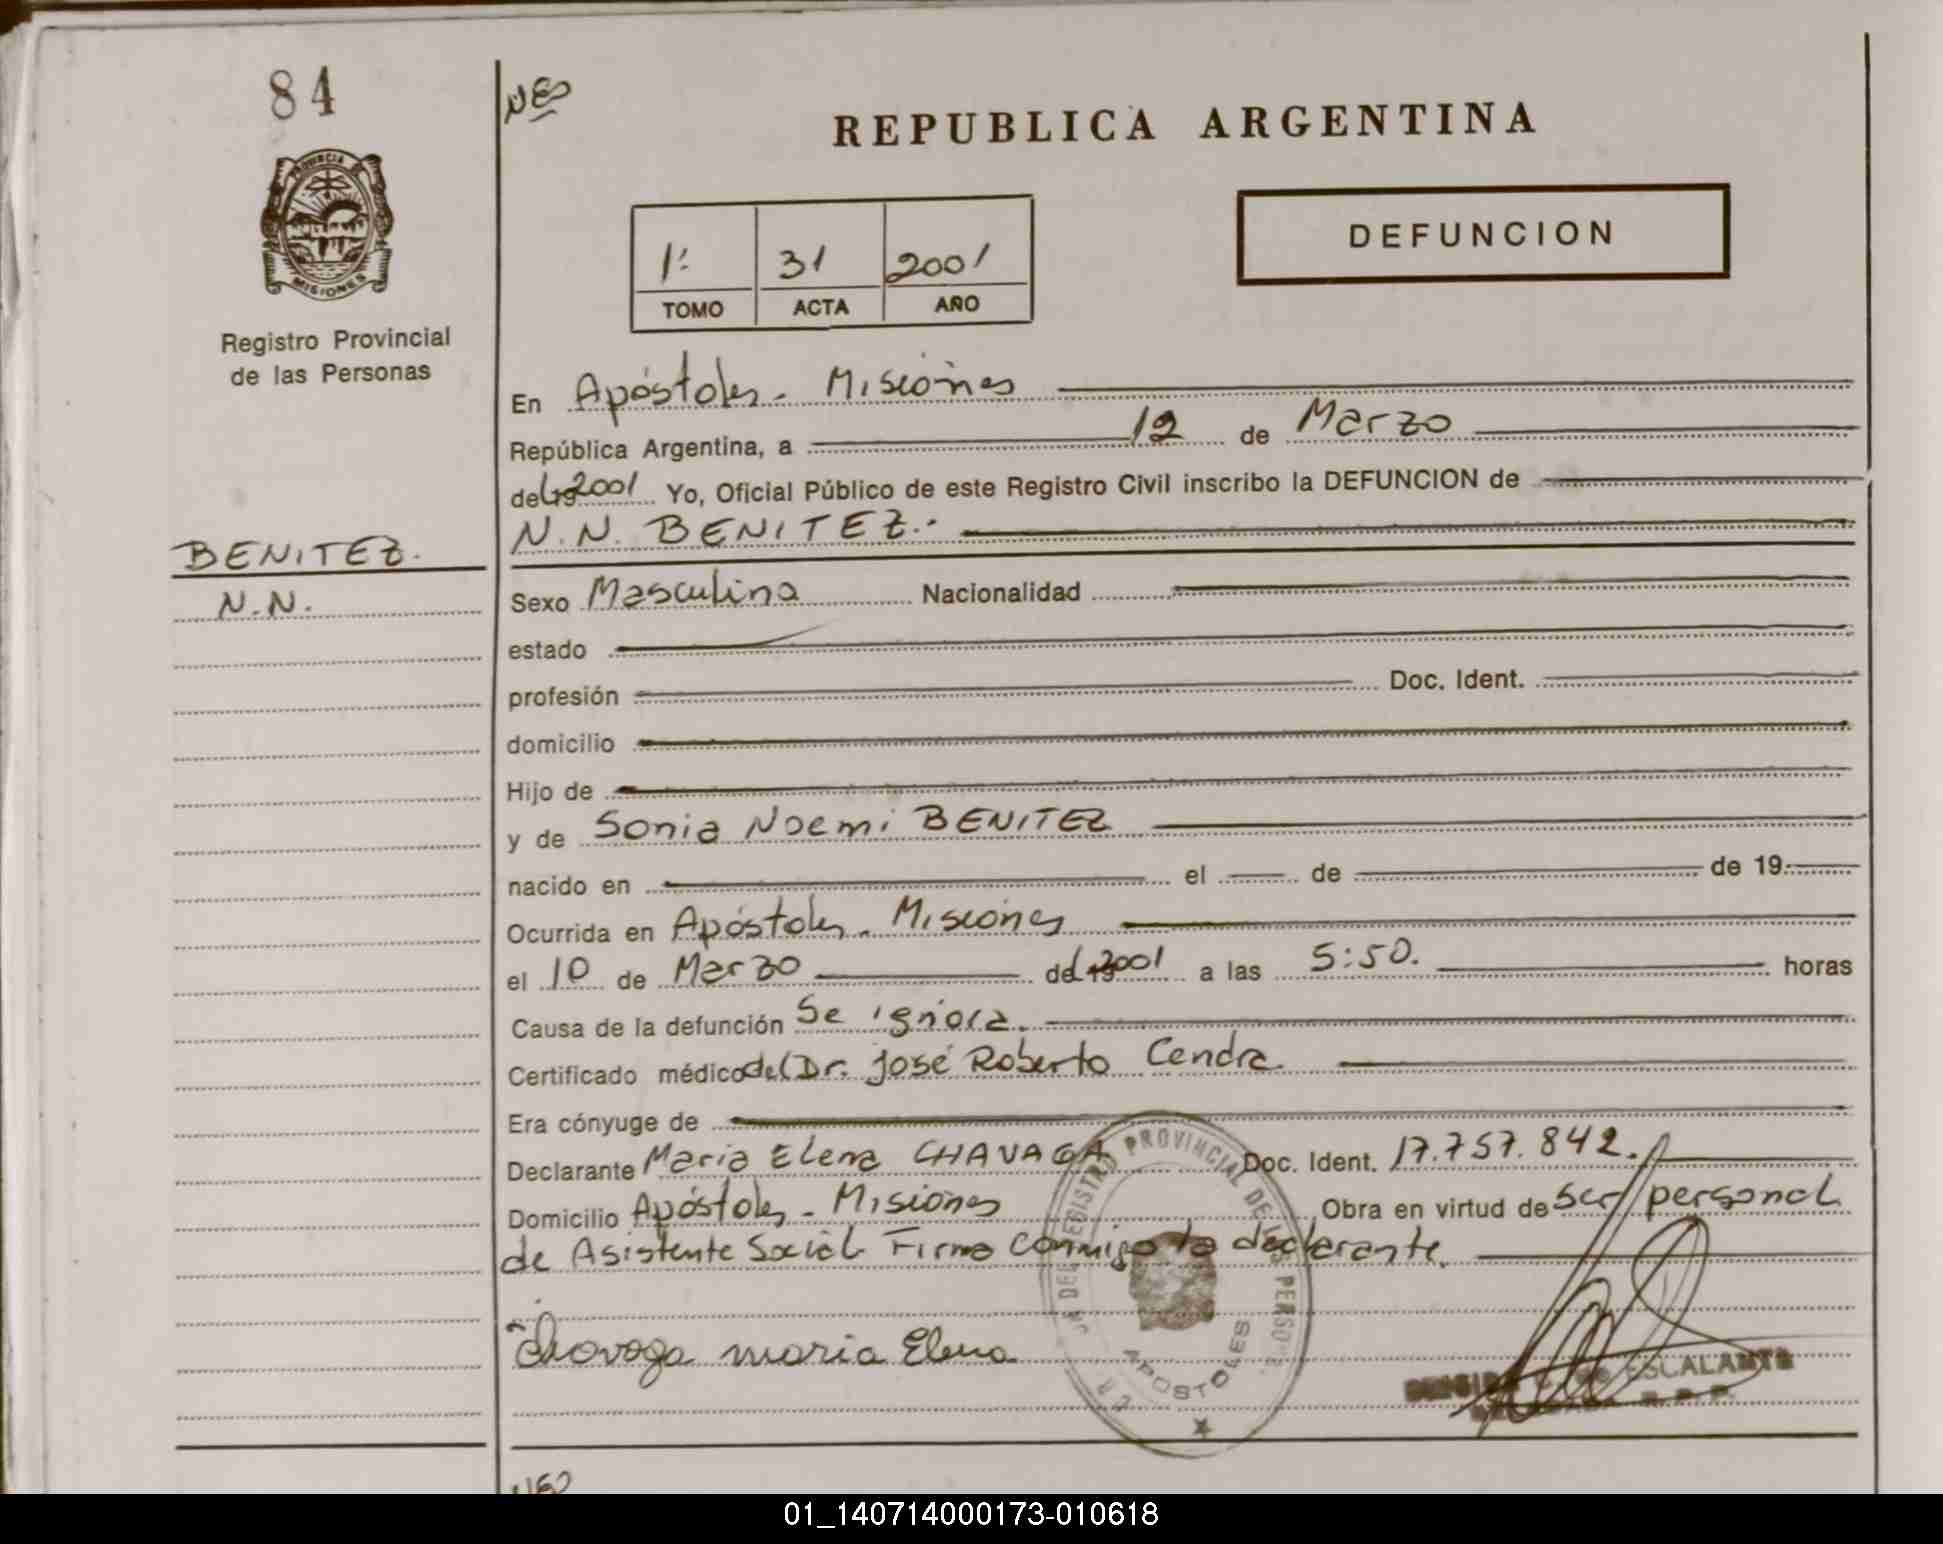 84
NES
REPUBLICA ARGENTINA
PROVINCIA DE
MISIONES
DEFUNCION
1: 31 2001
TOMO ACTA AÑO
Registro Provincial
de las Personas
En Apóstoles - Misiones
República Argentina, a 12 de Marzo
del 2001 Yo, Oficial Público de este Registro Civil inscribo la DEFUNCION de
BENITEZ.
N.N.
N.N. BENITEZ.-
Sexo Masculino Nacionalidad
estado
profesión Doc. Ident.
domicilio
Hijo de
y de Sonia Noemi BENITEZ
nacido en el de de 19
Ocurrida en Apóstoles - Misiones
el 10 de Marzo del 2001 a las 5:50. horas
Causa de la defunción Se ignora.
Certificado médico del Dr. José Roberto Cendra
Era cónyuge de
Declarante Maria Elena CHAVAGA Doc. Ident. 17.757.842.
Domicilio Apóstoles - Misiones Obra en virtud de ser personal
de Asistente Social Firma conmigo la declarante.
Chavaga maria Elena
REGISTRO PROVINCIAL DE LAS PERSONAS
APOSTOLES
ESCALANTE
R.P.P.
01_140714000173-010618